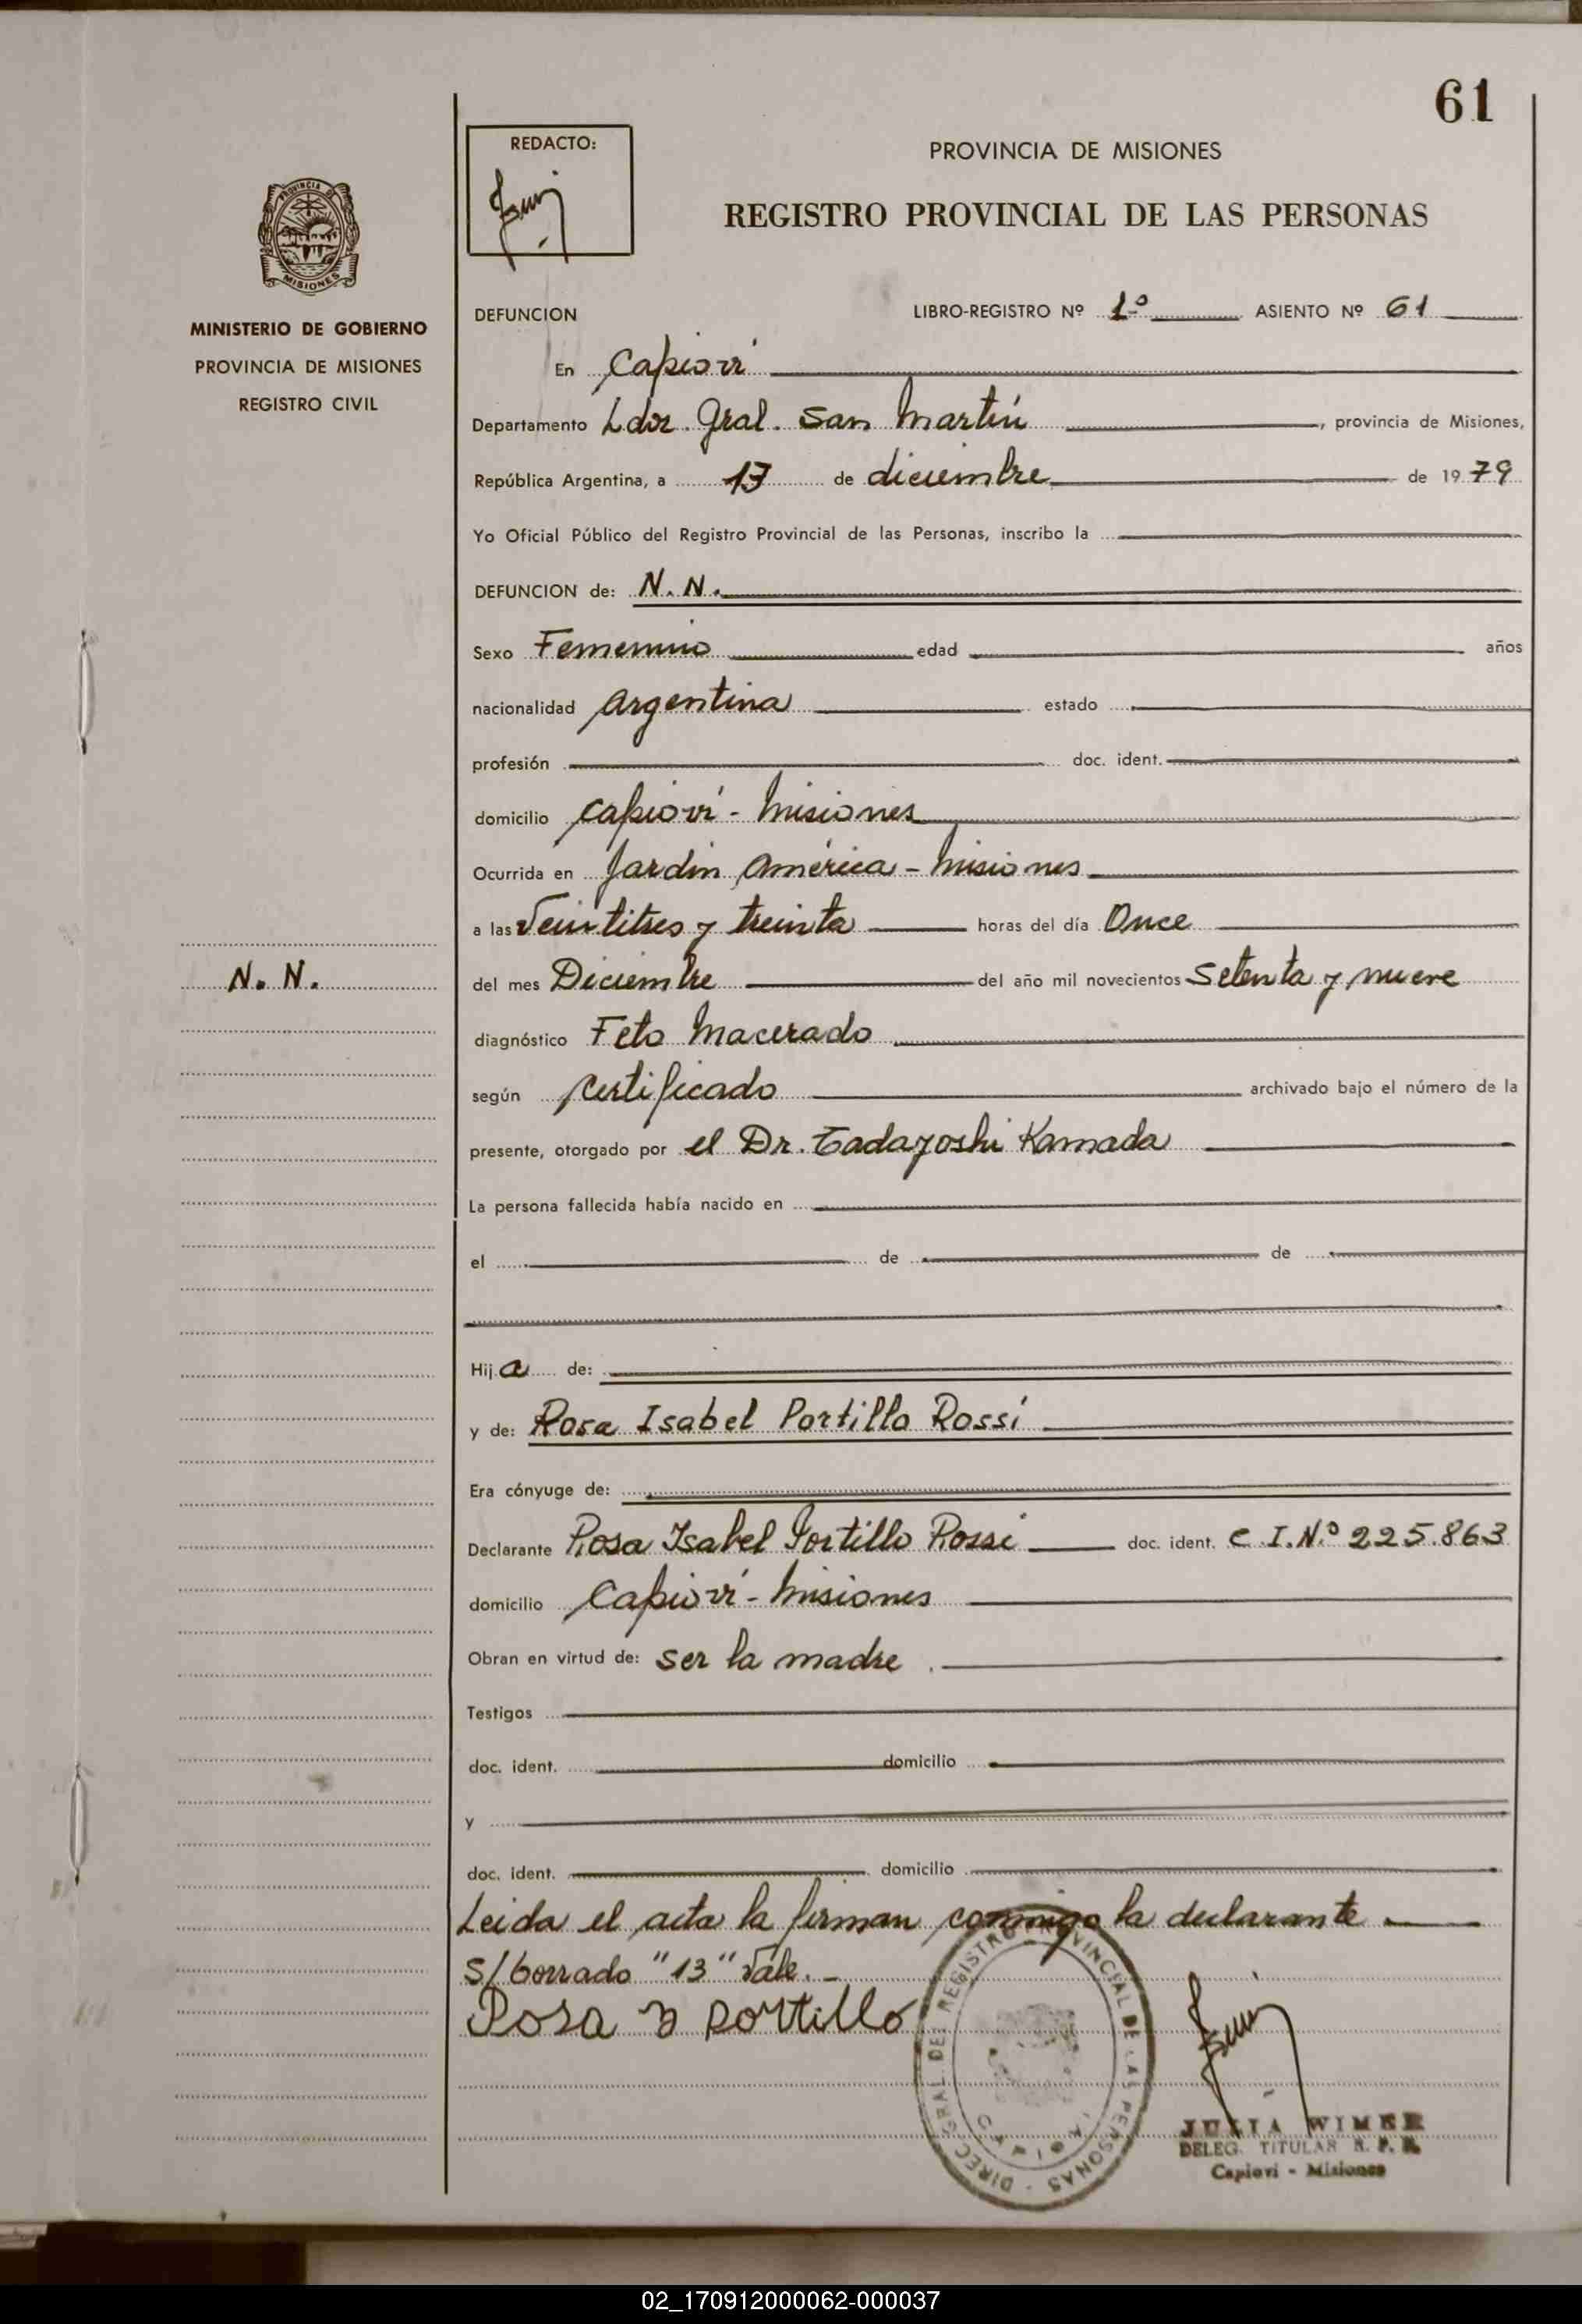 61
REDACTO:
PROVINCIA DE MISIONES
REGISTRO PROVINCIAL DE LAS PERSONAS
PROVINCIA DE
MISIONES
MINISTERIO DE GOBIERNO
PROVINCIA DE MISIONES
REGISTRO CIVIL
DEFUNCION LIBRO-REGISTRO Nº 1º ASIENTO Nº 61
En Capioví
Departamento Ldor. Gral. San Martín, provincia de Misiones,
República Argentina, a 13 de diciembre de 1979
Yo Oficial Público del Registro Provincial de las Personas, inscribo la
DEFUNCION de: N. N.
Sexo Femenino edad años
nacionalidad Argentina estado
profesión doc. ident.
domicilio Capioví - Misiones
Ocurrida en Jardín América - Misiones
a las Veintitres y treinta horas del día Once
N. N.
del mes Diciembre del año mil novecientos Setenta y nueve
diagnóstico Feto Macerado
según certificado archivado bajo el número de la
presente, otorgado por el Dr. Tadayoshi Kamada
La persona fallecida había nacido en
el de de
Hija de:
y de: Rosa Isabel Portillo Rossi
Era cónyuge de:
Declarante Rosa Isabel Portillo Rossi doc. ident. C.I.Nº 225.863
domicilio Capioví - Misiones
Obran en virtud de: ser la madre.
Testigos
doc. ident. domicilio
y
doc. ident. domicilio
Leida el acta la firman conmigo la declarante.
S/borrado "13" Vale.-
Rosa Y Portillo
DIREC. GRAL. DEL REGISTRO PROVINCIAL DE LAS PERSONAS
CAPIOVI
JULIA WIMER
DELEG. TITULAR R. P. P.
Capiovi - Misiones
02_170912000062-000037